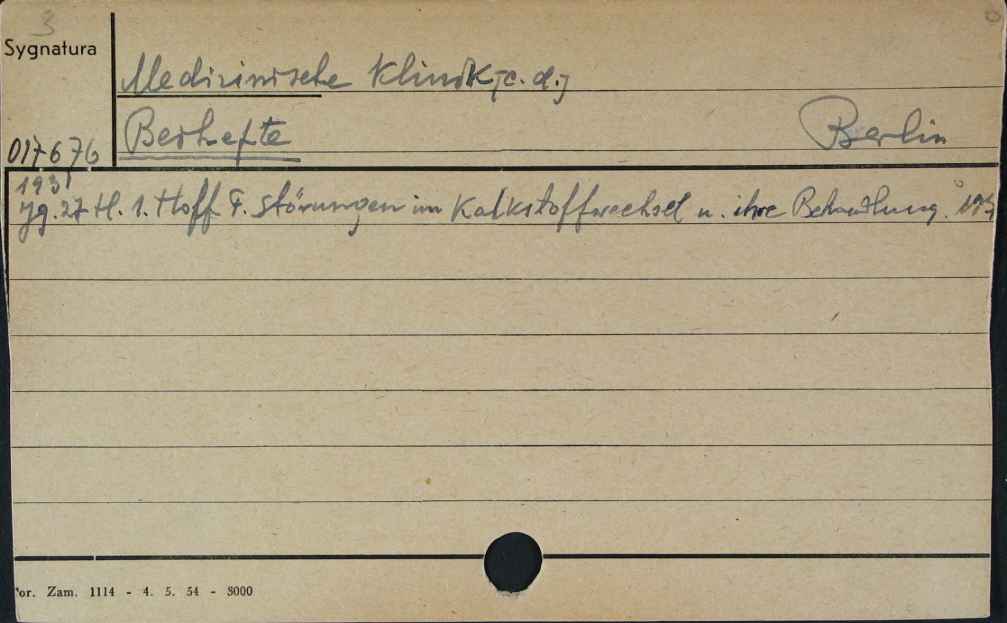 3
Sygnatura
Medizinische Klinik [c. d.]
Beihefte Berlin
017676
1931
Jg. 27 H. 1. Hoff F. Störungen im Kalkstoffwechsel u. ihre Behandlung.
Zam. 1114 - 4. 5. 54 - 3000